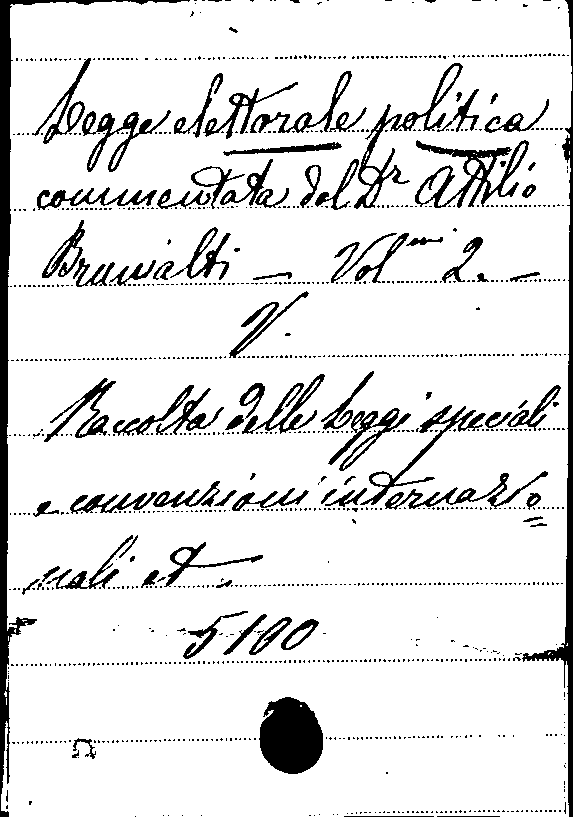 Legge elettorale politica
commentata dal Dr Attilio
Brunialti — Volmi 2. —
V.
Raccolta delle Leggi speciali
e convenzioni internazio=
nali et -
5100